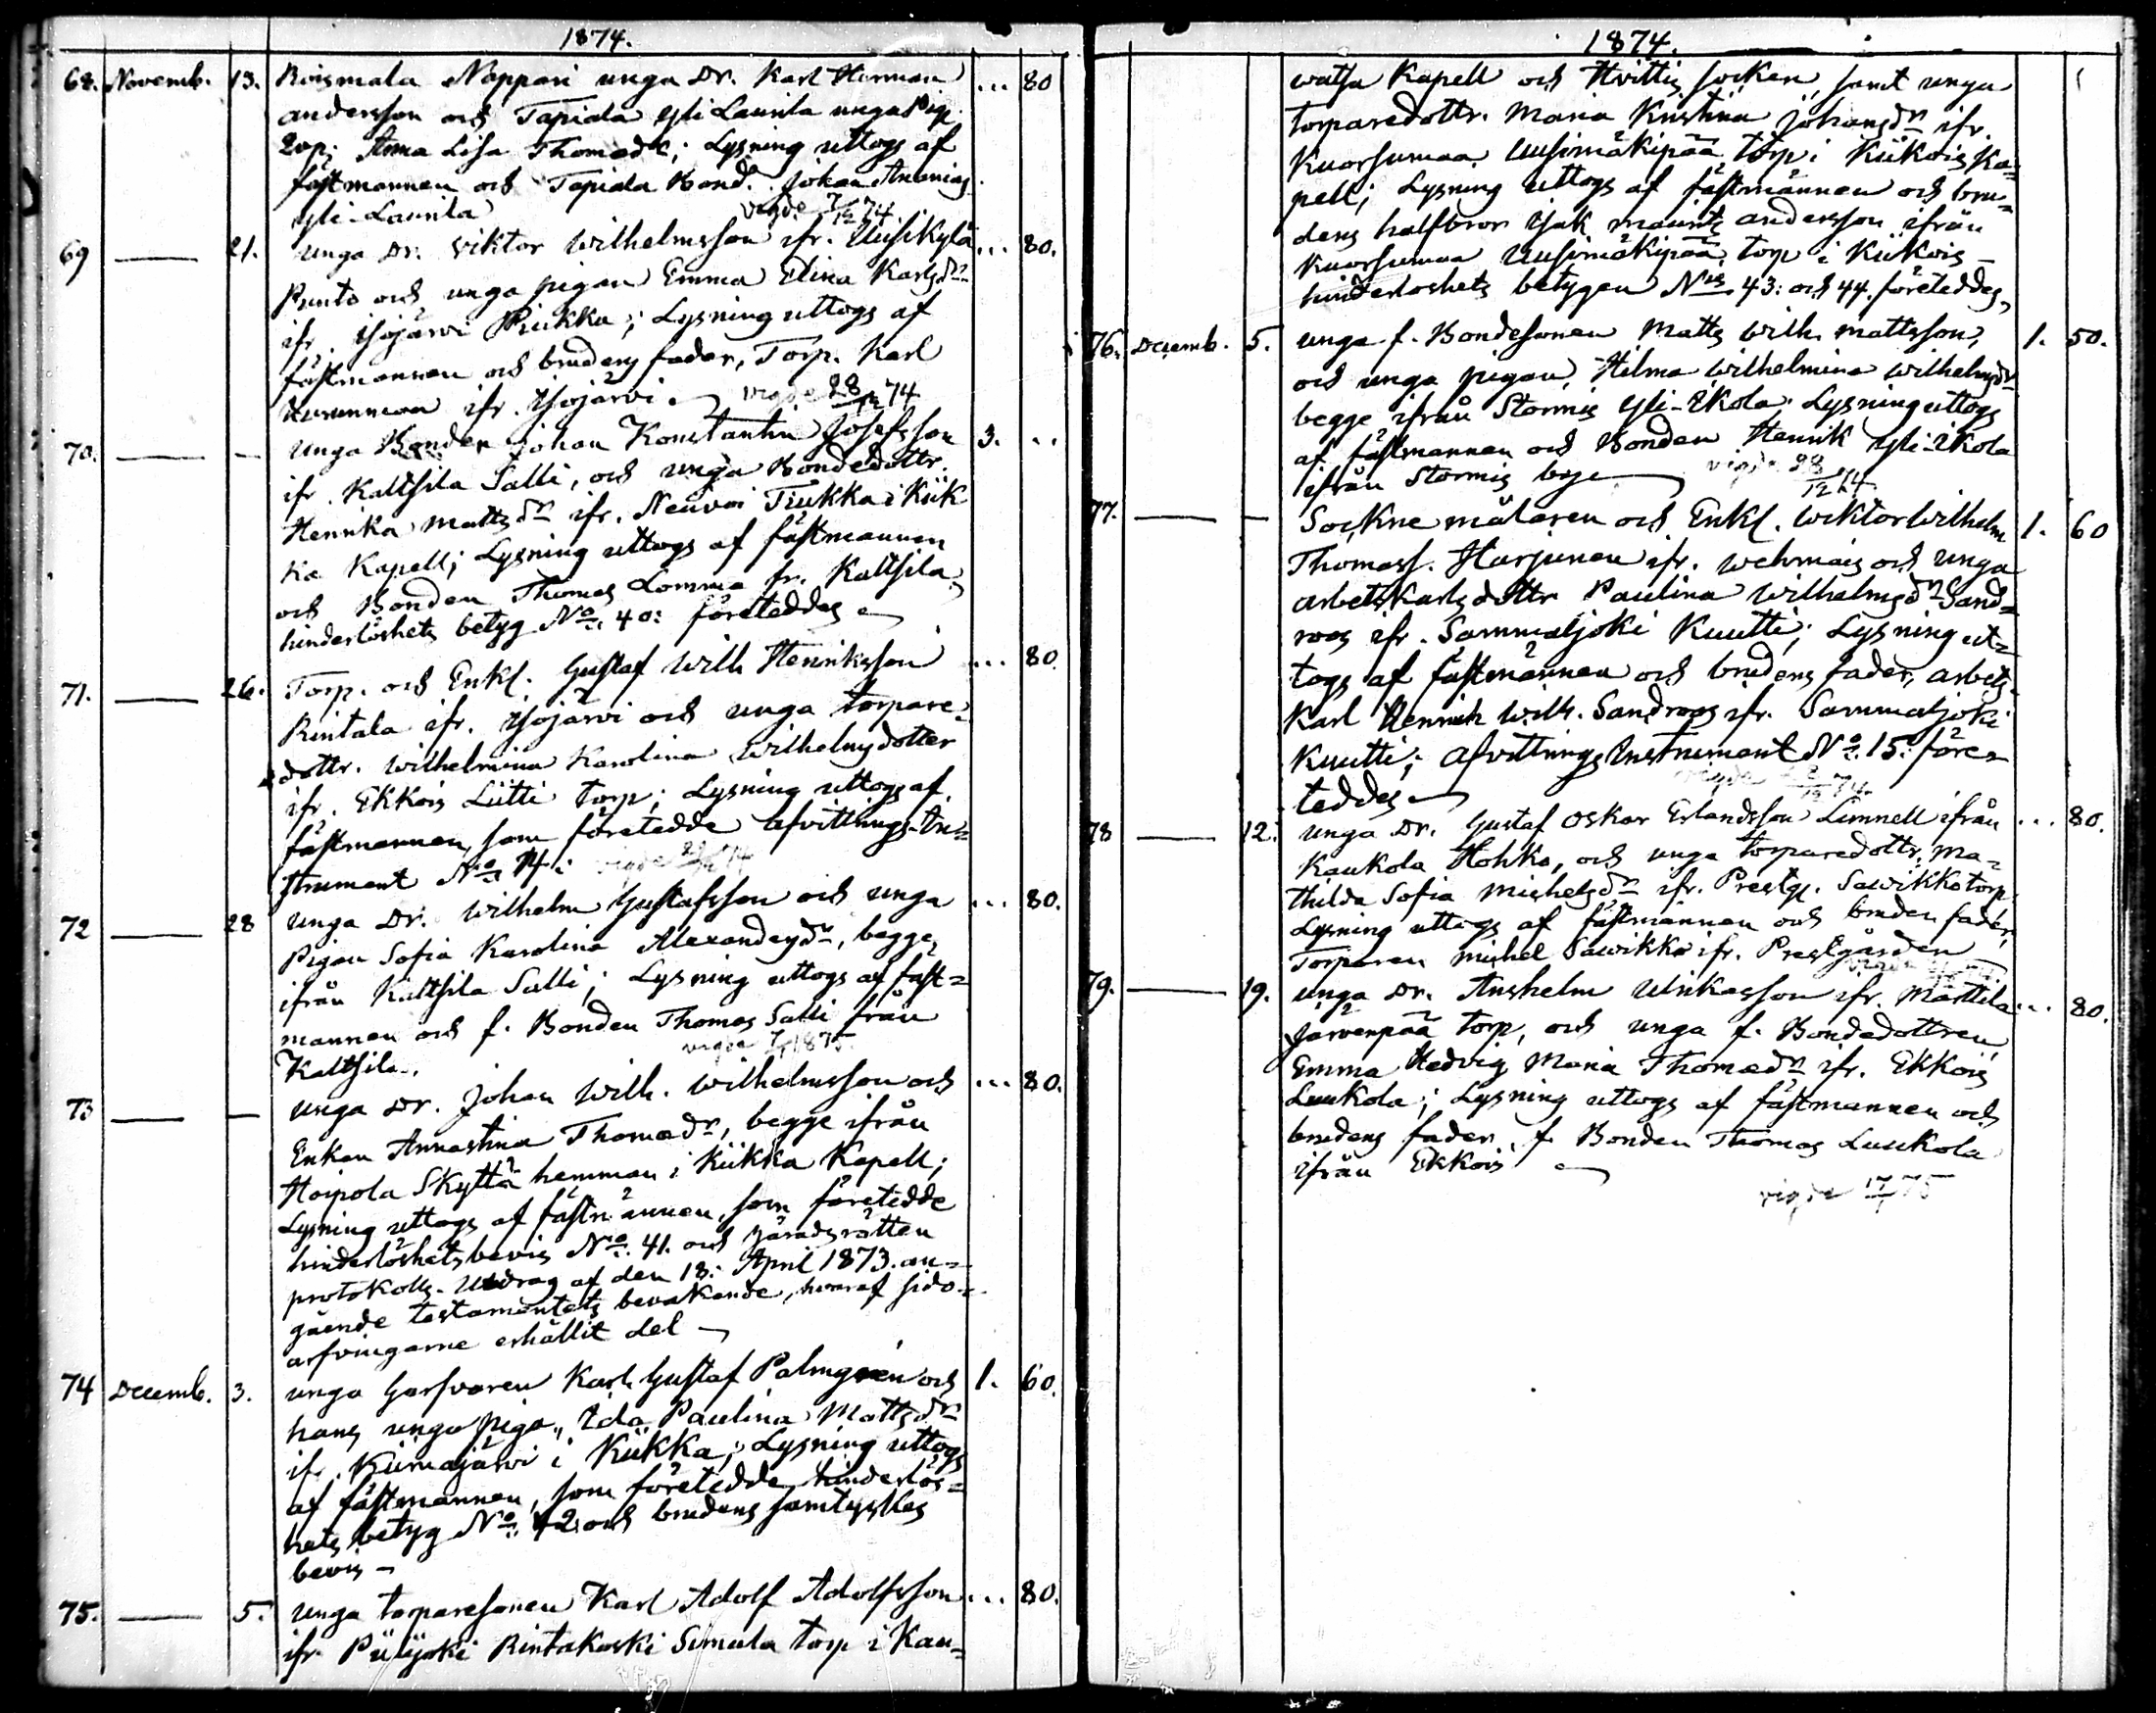 1874.
68. Novemb. 13. Roismala Nappari unga Dr. Karl Herman ... 80
andersson och Tapiala Yli Launila unga Pig.
Anna Lisa Thomædr; Lysning uttogs af
fästmannen och Tapiala Bond. Johan Ananias
Yli-Launila vigde 7/12 74
69 — 21. unga Dr. Viktor Wilhelmsson ifr. Uusikylä ... 80.
Punto och unga pigan Emma Elina Karlsdr
ifr. Isojärvi Piukka; Lysning uttogs af
fästmannen och brudens fader, Torp. Karl
ifr. Isojärvi. vigde 28/12 74
70. — — unga Bonden Johan Konstantin Josefsson 3. ..
ifr. Kaltsila Salli, och unga Bondedottr.
Henrika Mattsdr ifr. Neuvoi Tiukka i Kiik
ka Kapell; Lysning uttogs af fästmannen
och Bonden Thomas Lomma fr. Kaltsila,
hinderlöshets betyg No. 40: företeddes
71. — 26. Torp. och Enkl. Gustaf Wilh Henriksson ... 80.
Rintala ifr. Isojärvi och unga torpare
dottr. Wilhelmina Karolina Wilhelmsdotter
ifr. Ekkois Liitti torp; Lysning uttogs af
fästmannen, som företedde afvittrings-In=
strument No. 14: vigde
72 — 28 unga Dr. Wilhelm Gustafsson och unga ... 80.
Pigan Sofia Karolina Alexandersdr, begge
ifrån Kaltsila Salli; Lysning uttogs af fäst=
mannen och f. Bonden Thomas Salli från
Kaltsila. vigde 1875.
73 — — unga Dr. Johan Wilh. Wilhelmsson och ... 80.
Enkan Annastina Thomædr, begge ifrån
Hoipola Skyttä hemman i Kiikka Kapell;
Lysning uttogs af fästmannen, som företedde
hinderlöshetsbevis No. 41. och häradsrätten
protokolls-Utdrag af den 18: April 1873. an=
gående testamentets bevakande, hvaraf sido=
arfvingarne erhållit del —
74 Decemb. 3. unga Garfvaren Karl Gustaf Palmgren och 1. 60.
hans unga piga, Ida Paulina Mattsdr
ifr. Kiimajärvi i Kiikka; Lysning uttogs
af fästmannen, som företedde hinderlös=
hets betyg No. 42: och brudens samtyckes
bevis —
75. — 5. unga torparesonen Karl Adolf Adolfsson ... 80.
ifr. Piilijoki Rintakoski Simula torp i Kau=
1874.
watsa Kapell och Hvittis socken, samt unga
torparedottr. Maria Kristina Johansdr ifr.
Kuorsumaa Uusimäkipää torp i Kiikois Ka=
pell; Lysning uttogs af fästmannen och bru=
dens halfbror Isak Maurits andersson ifrån
Kuorsumaa Uusimäkipää torp i Kiikois —
hinderloshets betygen Nris 43: och 44. företeddes,
76. Decemb. 5. unga f. Bondesonen Matts Wilh. Mattsson, 1. 50.
och unga pigan, Hilma Wilhelmina Wilhelmsdr
begge ifrån Stormis Yli-Ikola; Lysning uttogs
af fästmannen och Bonden Henrik Yli-Ikola
ifrån Stormis bye — vigde 28/12 74
77. — — Sockne målaren och Enkl. Wiktor Wilhelm 1. 60
Thomass. Harjunen ifr. Wehmais och unga
arbetskarls dottr Paulina Wilhelmsdr Sand=
roos ifr. Sammaljoki Kuutti; Lysning ut=
togs af fästmannen och brudens fader, arbets
Karl Henrik Wilh. Sandroos ifr. Sammaljoki
Kuutti; Afvittrings Instrument No. 15: före=
teddes — vigde /12 74.
78 — 12. unga Dr. Gustaf Oskar Erlandsson Limnell ifrån ... 80.
Kaukola Hohko, och unga torparedottr. Ma=
thilda Sofia Michelsdr ifr. Prestg. Sawikko torp
Lysning uttogs af fästmannen och bruden fader,
Torparen Michel Sawikko ifr. Prestgården
79. — 19. unga Dr. Anshelm Ulrikasson ifr. Marttila ... 80.
Järvenpää torp, och unga f. Bondedottren
Emma Hedvig Maria Thomædr ifr. Ekkois
Luukola; Lysning uttogs af fästmannen och
brudens fader f. Bonden Thomas Luukola
ifrån Ekkois —
vigde 17/1 75